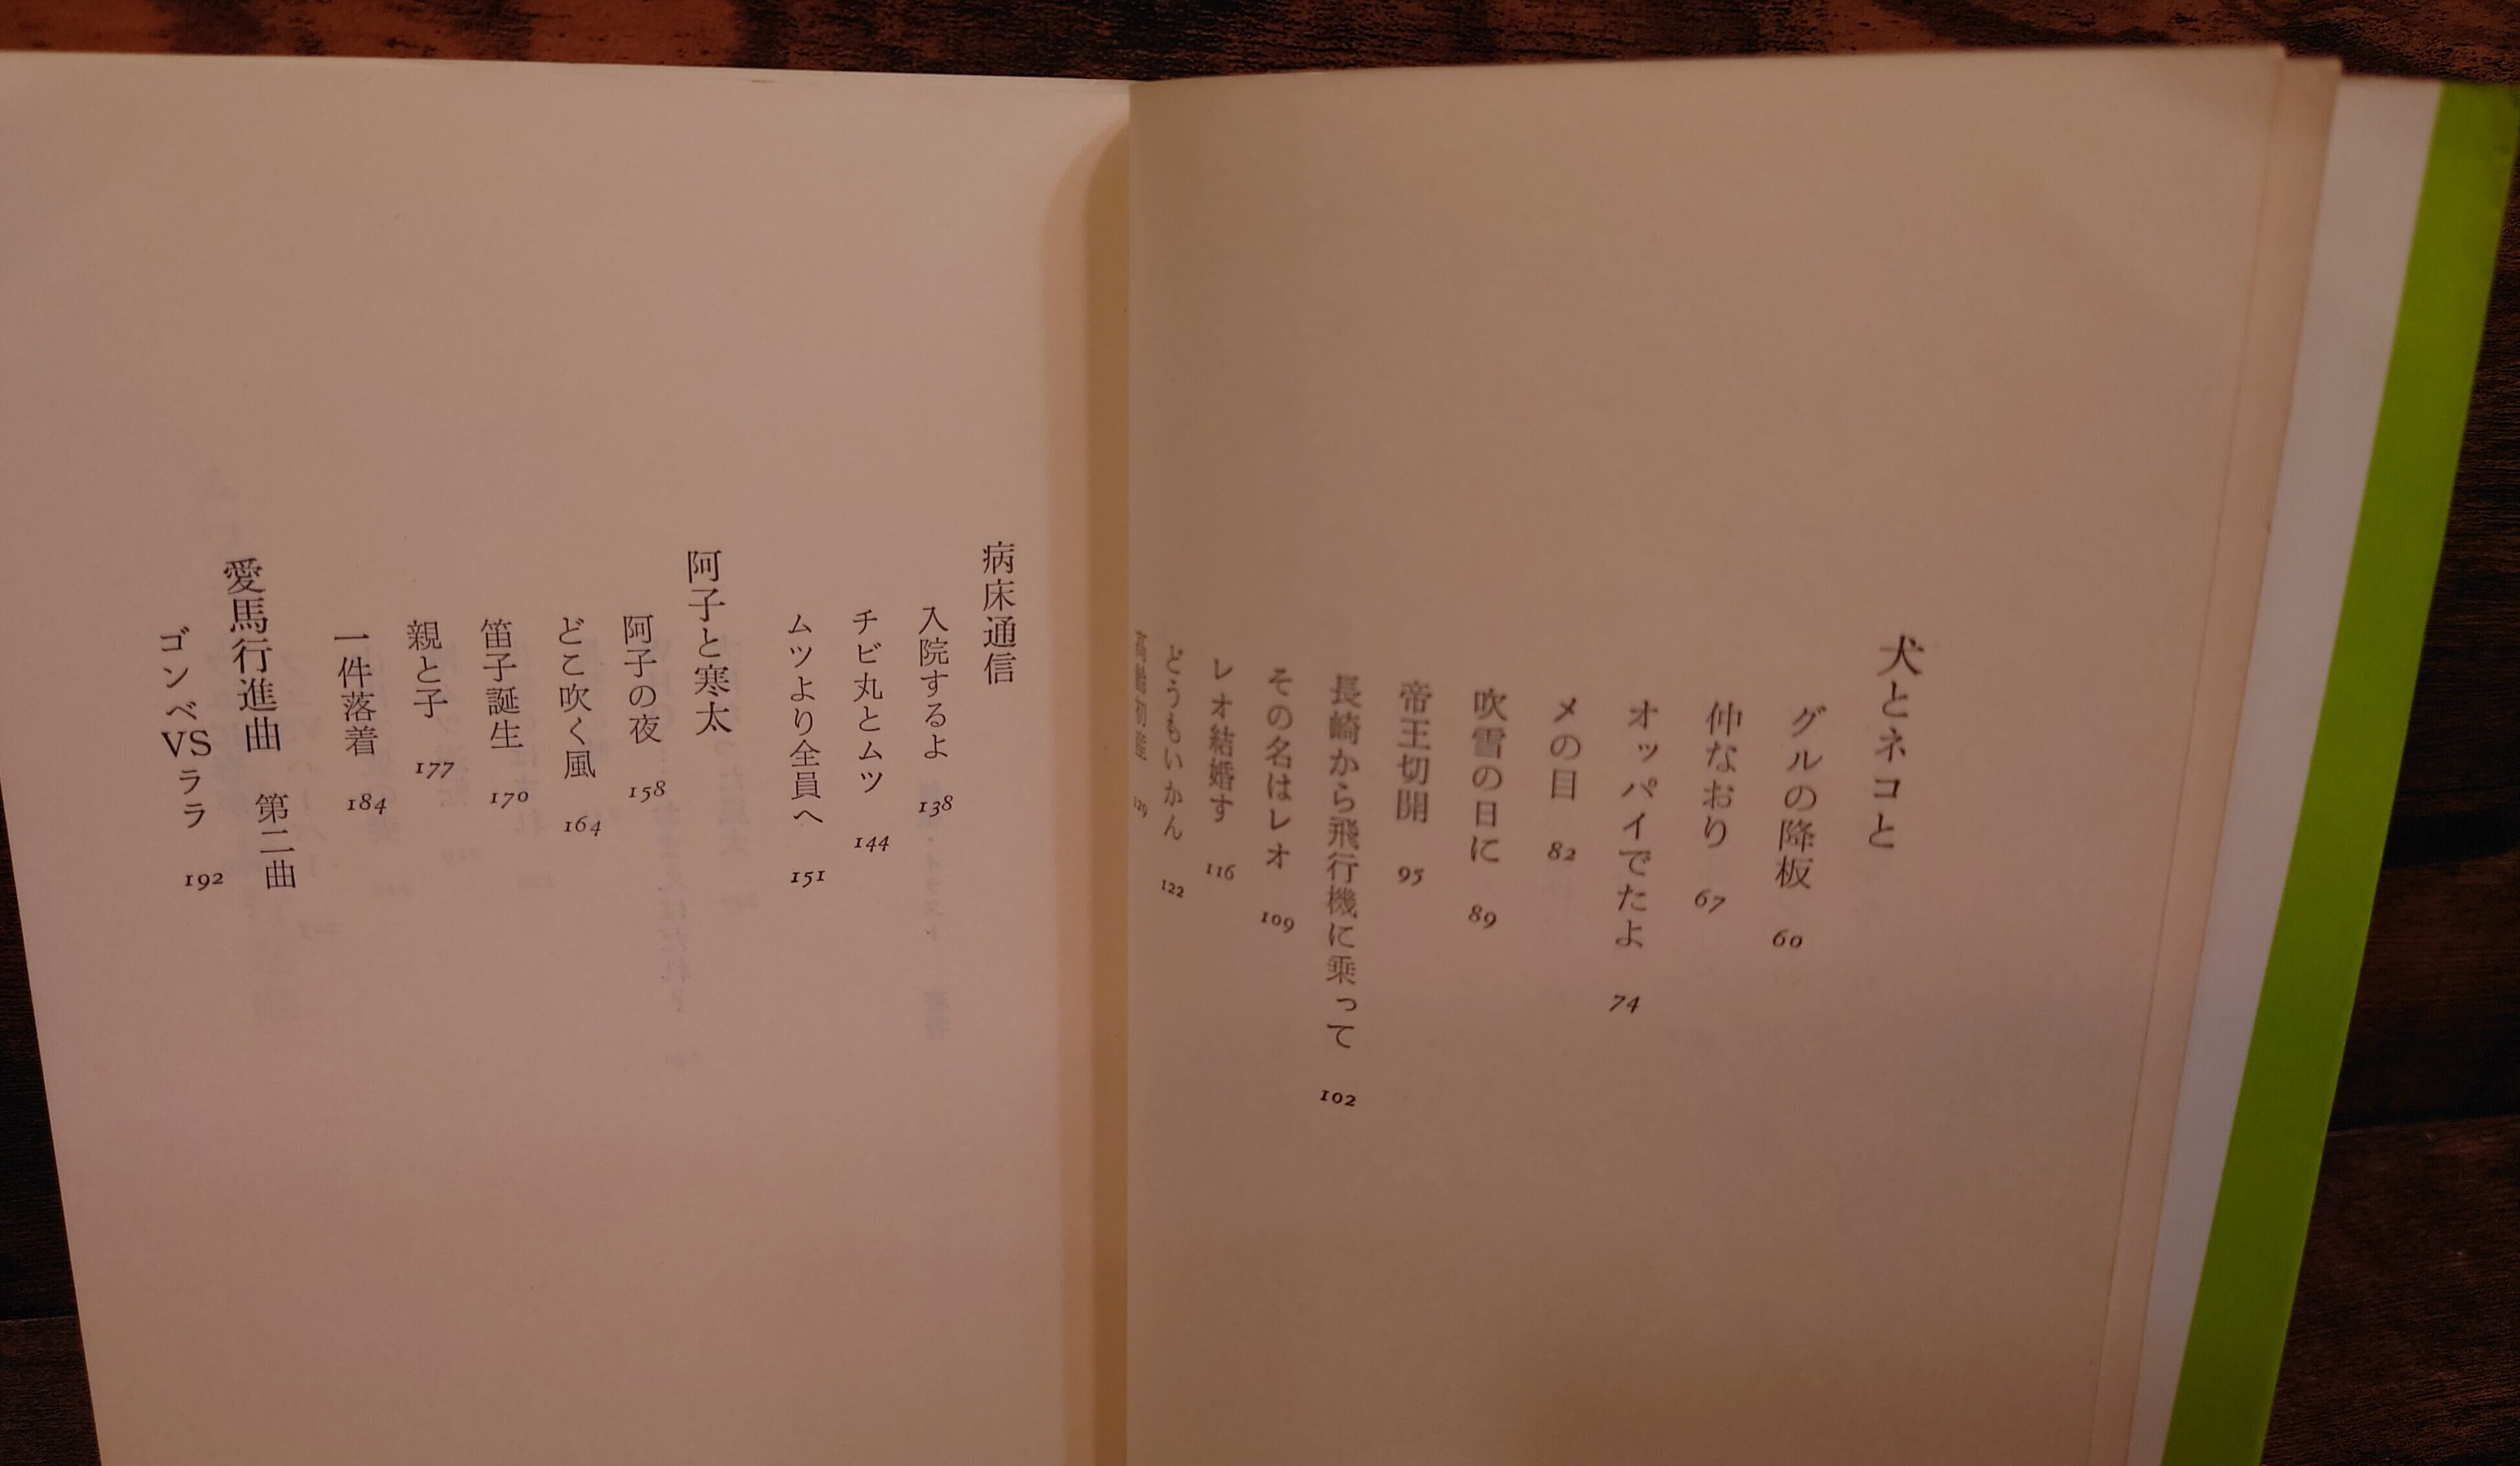 犬とネコと
グルの降板 60
仲なおり 67
オッパイでたよ 74
メの目 82
吹雪の日に 89
帝王切開 95
長崎から飛行機に乗って 102
その名はレオ 109
レオ結婚す 116
どうもいかん 122
高齢初産 129
病床通信
入院するよ 138
チビ丸とムツ 144
ムツより全員へ 151
阿子と寒太
阿子の夜 158
どこ吹く風 164
笛子誕生 170
親と子 177
一件落着 184
愛馬行進曲 第二曲
ゴンベVSララ 192